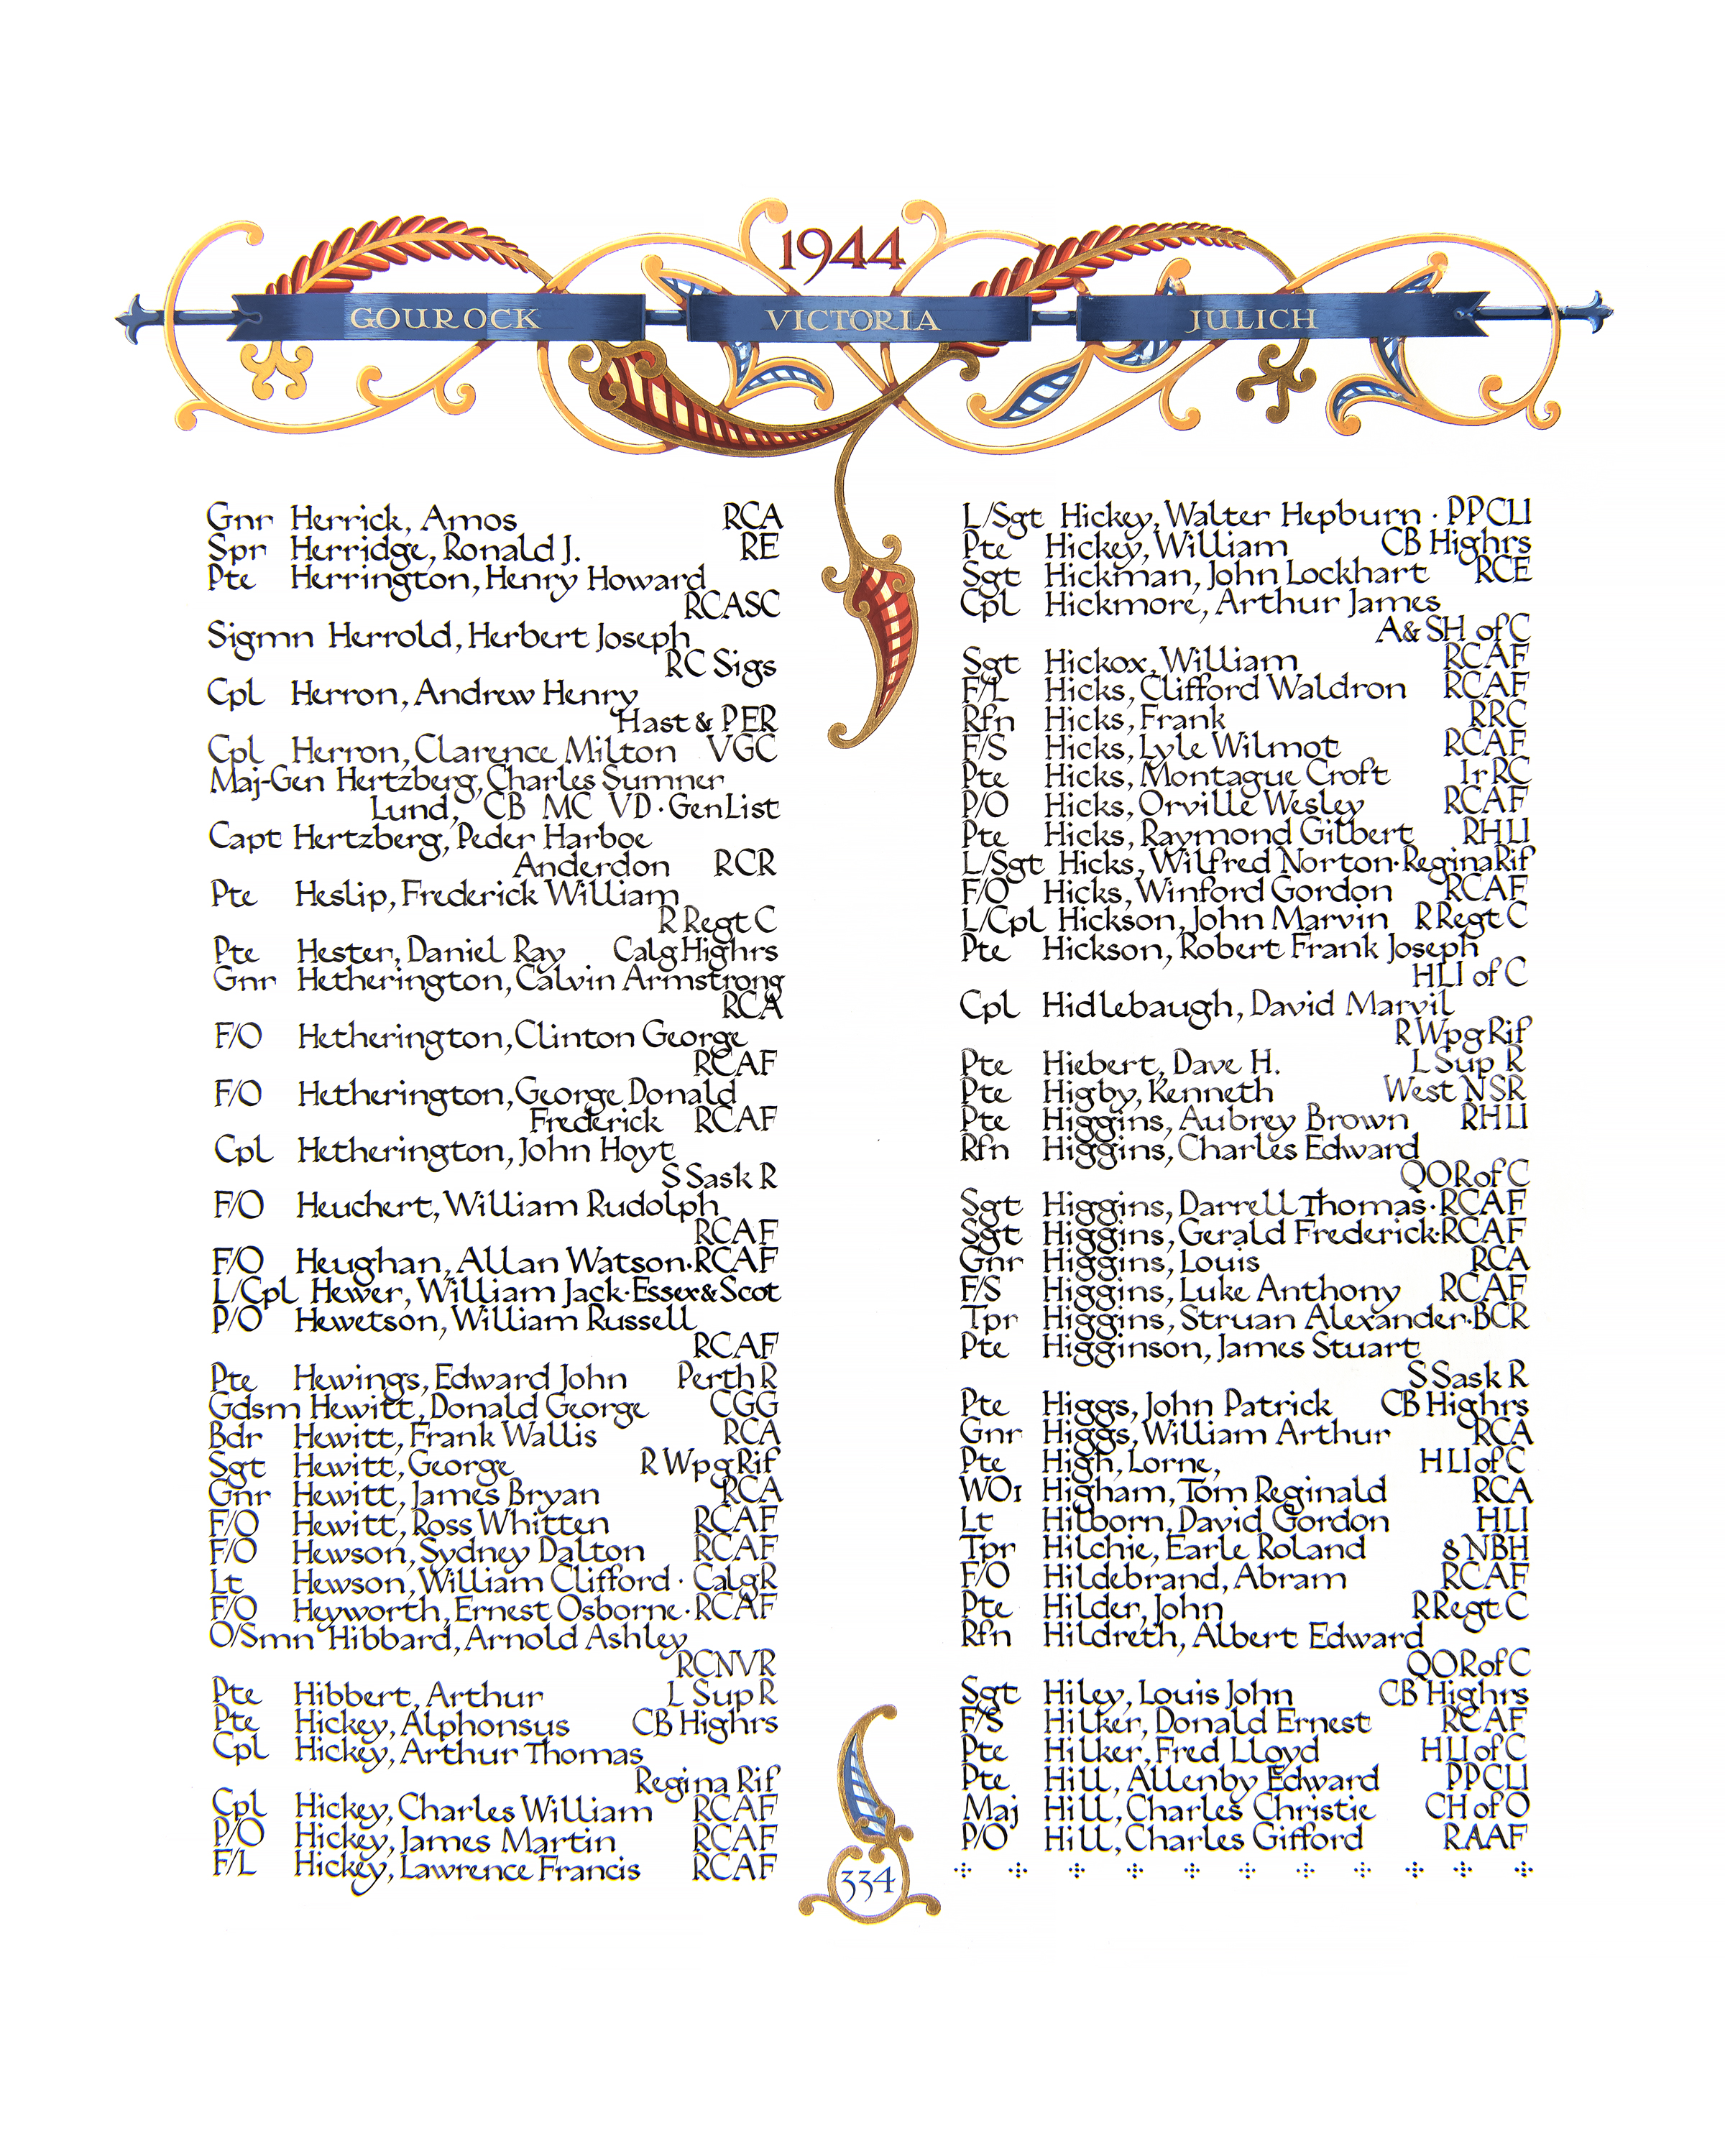 1944
GOUROCK VICTORIA JULICH
Gnr Herrick, Amos RCA
Spr Herridge, Ronald J. RE
Pte Herrington, Henry Howard
RCASC
Sigmn Herrold, Herbert Joseph
RC Sigs
Cpl Herron, Andrew Henry
Hast & PER
Cpl Herron, Clarence Milton VGC
Maj-Gen Hertzberg, Charles Sumner
Lund, CB MC VD · Gen List
Capt Hertzberg, Peder Harboe
Anderdon RCR
Pte Heslip, Frederick William
R Regt C
Pte Hester, Daniel Ray Calg Highrs
Gnr Hetherington, Calvin Armstrong
RCA
F/O Hetherington, Clinton George
RCAF
F/O Hetherington, George Donald
Frederick RCAF
Cpl Hetherington, John Hoyt
S Sask R
F/O Heuchert, William Rudolph
RCAF
F/O Heughan, Allan Watson · RCAF
L/Cpl Hewer, William Jack · Essex & Scot
P/O Hewetson, William Russell
RCAF
Pte Hewings, Edward John Perth R
Gdsm Hewitt, Donald George CGG
Bdr Hewitt, Frank Wallis RCA
Sgt Hewitt, George R Wpg Rif
Gnr Hewitt, James Bryan RCA
F/O Hewitt, Ross Whitten RCAF
F/O Hewson, Sydney Dalton RCAF
Lt Hewson, William Clifford · Calg R
F/O Heyworth, Ernest Osborne · RCAF
O/Smn Hibbard, Arnold Ashley
RCNVR
Pte Hibbert, Arthur L Sup R
Pte Hickey, Alphonsus CB Highrs
Cpl Hickey, Arthur Thomas
Regina Rif
Cpl Hickey, Charles William RCAF
P/O Hickey, James Martin RCAF
F/L Hickey, Lawrence Francis RCAF
L/Sgt Hickey, Walter Hepburn · PPCLI
Pte Hickey, William CB Highrs
Sgt Hickman, John Lockhart RCE
Cpl Hickmore, Arthur James
A & SH of C
Sgt Hickox, William RCAF
F/L Hicks, Clifford Waldron RCAF
Rfn Hicks, Frank RRC
F/S Hicks, Lyle Wilmot RCAF
Pte Hicks, Montague Croft Ir RC
P/O Hicks, Orville Wesley RCAF
Pte Hicks, Raymond Gilbert RHLI
L/Sgt Hicks, Wilfred Norton · Regina Rif
F/O Hicks, Winford Gordon RCAF
L/Cpl Hickson, John Marvin R Regt C
Pte Hickson, Robert Frank Joseph
HLI of C
Cpl Hidlebaugh, David Marvil
R Wpg Rif
Pte Hiebert, Dave H. L Sup R
Pte Higby, Kenneth West NSR
Pte Higgins, Aubrey Brown RHLI
Rfn Higgins, Charles Edward
QOR of C
Sgt Higgins, Darrell Thomas · RCAF
Sgt Higgins, Gerald Frederick · RCAF
Gnr Higgins, Louis RCA
F/S Higgins, Luke Anthony RCAF
Tpr Higgins, Struan Alexander · BCR
Pte Higginson, James Stuart
S Sask R
Pte Higgs, John Patrick CB Highrs
Gnr Higgs, William Arthur RCA
Pte High, Lorne, HLI of C
WO1 Higham, Tom Reginald RCA
Lt Hilborn, David Gordon HLI
Tpr Hilchie, Earle Roland 8 NBH
F/O Hildebrand, Abram RCAF
Pte Hilder, John R Regt C
Rfn Hildreth, Albert Edward
QOR of C
Sgt Hiley, Louis John CB Highrs
F/S Hilker, Donald Ernest RCAF
Pte Hilker, Fred Lloyd HLI of C
Pte Hill, Allenby Edward PPCLI
Maj Hill, Charles Christie CH of O
P/O Hill, Charles Gifford RAAF
334